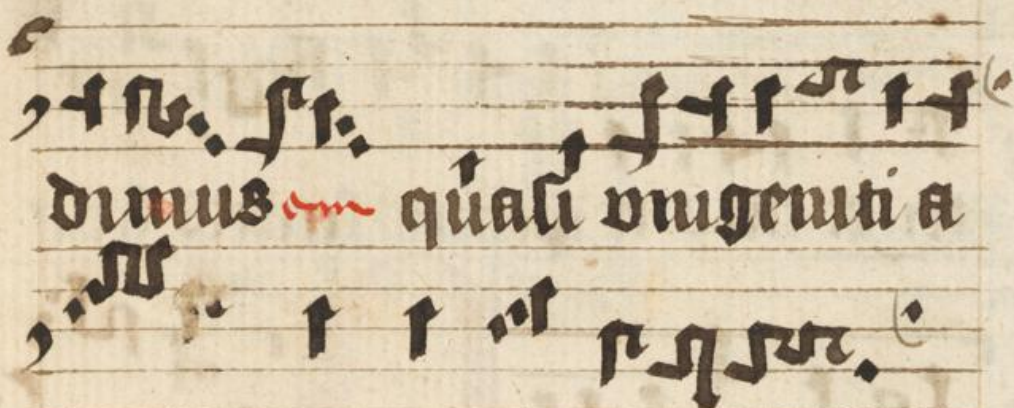 dimus em quasi vnigeniti a